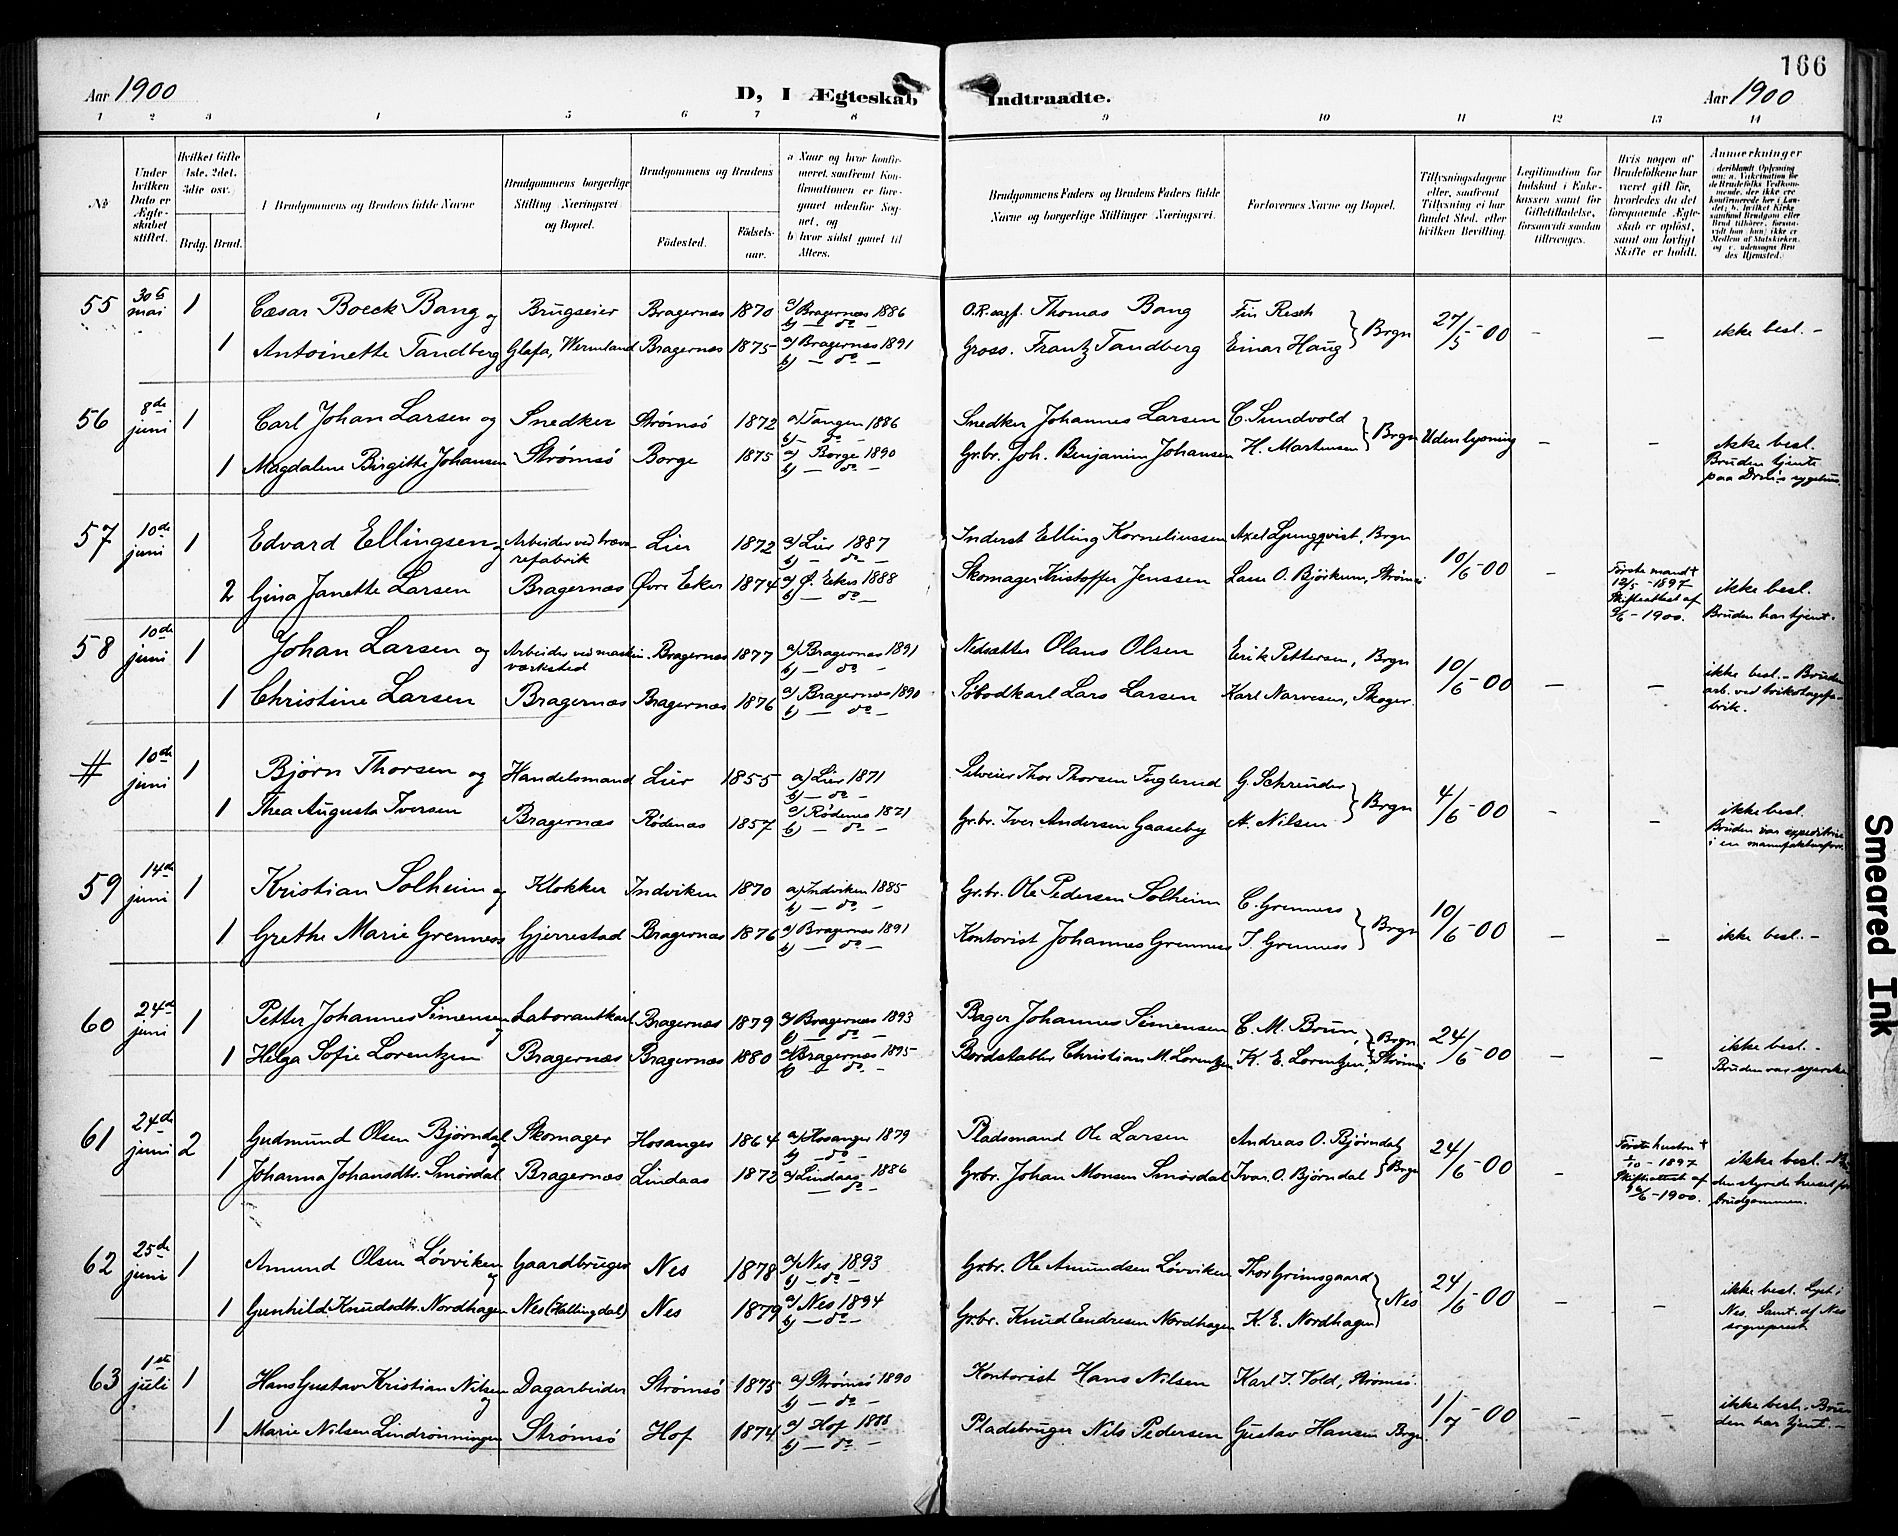 166
Aar 1900
D, I Ægteskab Indtraadte.
Aar 1900
1 2 3 4 5 6 7 8 9 10 11 12 13 14
No.
Under hvilken Dato er Ægteskabet stiftet.
Hvilket Gifte 1ste, 2det, 3die osv.
Brdg. Brud.
Brudgommens og Brudens fulde Navne
Brudgommens borgerlige Stilling Næringsvei og Bopæl.
Brudgommens og Brudens
Fødested.
Fødselsaar.
a Naar og hvor konfirmeret, saafremt Konfirmationen er foregaaet udenfor Sognet, og
b) hvor sidst gaaet til Alters.
Brudgommens Faders og Brudens Faders fulde Navne og borgerlige Stillinger Næringsvei.
Forlovernes Navne og Bopæl.
Tillysningsdagene eller, saafremt Tillysning ei har fundet Sted, efter hvilken Bevilling.
Legitimation for Indskud i Enkekassen samt for Giftetilladelse, forsaavidt saadan tiltrænges.
Hvis nogen af Brudefolkene har været gift før, hvorledes da det foregaaende Ægteskab er opløst, samt om lovligt Skifte er holdt.
Anmærkninger
55 30te mai 1 Cæsar Boeck Bang og Brugseier Bragernæs 1870 a) Bragernæs 1886
b) — do —
O.R.sagf. Thomas Bang Fin Resch
1 Antoinette Tandberg Glafa, Wermland Bragernæs 1875 a) Bragernæs 1891
b) — do —
Gross. Frantz Tandberg Einar Haug } Brgn 27/5-00 - — ikke besl. -
56 8de juni 1 Carl Johan Larsen og Snedker Strømsö 1872 a) Tangen 1886
b) — do —
Snedker Johannes Larsen C. Sundvold
1 Magdalene Birgitte Johansen Strømsö Borge 1875 a) Borge 1890
b) — do —
Gr.br. Joh. Benjamin Johansen H. Martensen } Brgn Uden lysning — — ikke besl.
Bruden tjente
paa Drm's sygehus.
57 10de juni 1 Edvard Ellingsen og Arbeider ved trævarefabrik Lier 1872 a) Lier 1887
b) — do —
Inderst Elling Korneliussen Axel Ljungqvist, Brgn
2 Gina Janette Larsen Bragernæs Øvre Eker 1874 a) Ø. Eker 1888
b) — do —
Skomager Kristoffer Jenssen Lars O. Björkum, Strøms. 10/6-00 — Første mand †
12/5 - 1897
Skifteattest af
- 1900.
ikke besl.
Bruden har tjent.
58 10de juni 1 Johan Larsen og Arbeider ved maskinværksted Bragernæs 1877 a) Bragernæs 1891
b) — do —
Nedsætter Olaus Olsen Erik Pettersen, Brgn
1 Christine Larsen Bragernæs Bragernæs 1876 a) Bragernæs 1890
b) — do —
Søbodkarl Lars Larsen Karl Narvesen, Skoger. 10/6-00 — — ikke besl. - Bruden
arb. ved
brik.
# 10de juni 1 Bjørn Thorsen og Handelsmand Lier 1855 a) Lier 1871
b) — do —
Selveier Thor Thorsen Fuglerud G. Schreuder
1 Thea Augusta Iversen Bragernæs Rødenæs 1857 a) Rødenes 1871
b) — do —
Gr.br. Iver Andersen Gaaseby A. Nilsen } Brgn 4/6-00 — — ikke besl.
Bruden var expeditrice
i en manufakturforr.
59 14de juni 1 Kristian Solheim og Klokker Indviken 1870 a) Indviken 1885
b) — do —
Gr.br. Ole Pedersen Solheim C. Grenness
1 Grethe Marie Grenness Gjerrestad Bragernæs 1876 a) Bragernæs 1891
b) — do —
Kontorist Johannes Grenness J. Grenness } Brgn 10/6-00 — — ikke besl. -
60 24de juni 1 Petter Johannes Simensen og Laborantkarl Bragernæs 1879 a) Bragernæs 1893
b) — do —
Bager Johannes Simensen C. M. Brun, Brgn
1 Helga Sofie Lorentzen Bragernæs Bragernæs 1880 a) Bragernæs 1895
b) — do —
Bordskabbr Christian M. Lorentzen K. E. Lorentzen, Strøms. 24/6-00 — — ikke besl. -
Bruden var syerske
61 24de juni 2 Gudmund Olsen Bjørndal og Skomager Hosanger 1864 a) Hosanger 1879
b) — do —
Pladsmand Ole Larsen Andreas O. Bjørndal
1 Johanna Johansdtr. Smørdal Bragernæs Lindaas 1872 a) Lindaas 1886
— do —
Gr.br. Johan Monsen Smørdal Ivar O. Bjørndal } Brgn 24/6-00 — Første hustru †
/10 - 1897
Skifteattest af
/6 - 1900.
ikke besl. -
den styrede huset for
brudgommen.
62 25de juni 1 Amund Olsen Løvviken og Gaardbruger Nes 1878 a) Nes 1893
b) — do —
Gr.br. Ole Amundsen Løvviken Thor Grimsgaard
1 Gunhild Knudsdtr. Nordhagen Nes (Hallingdal) Nes 1879 a) Nes 1894
b) — do —
Gr.br. Knud Endresen Nordhagen K. E. Nordhagen } Nes 24/6-00 — — ikke besl. Lyst i
Nes. Samt. af Nes
sogneprest
63 1ste juli 1 Hans Gustav Kristian Nilsen og Dagarbeider Strømsö 1875 a) Strømsö 1890
b) — do —
Kontorist Hans Nilsen Karl J. Vold, Strømsö.
1 Marie Nilsen Lindrønningen Strømsö Hof 1874 a) Hof 1888
b) — do —
Pladsbruger Nils Pedersen Gustav Hansen Brgn. 1/7-00 — — ikke besl. Bru-
den har tjent. -
Smeared Ink